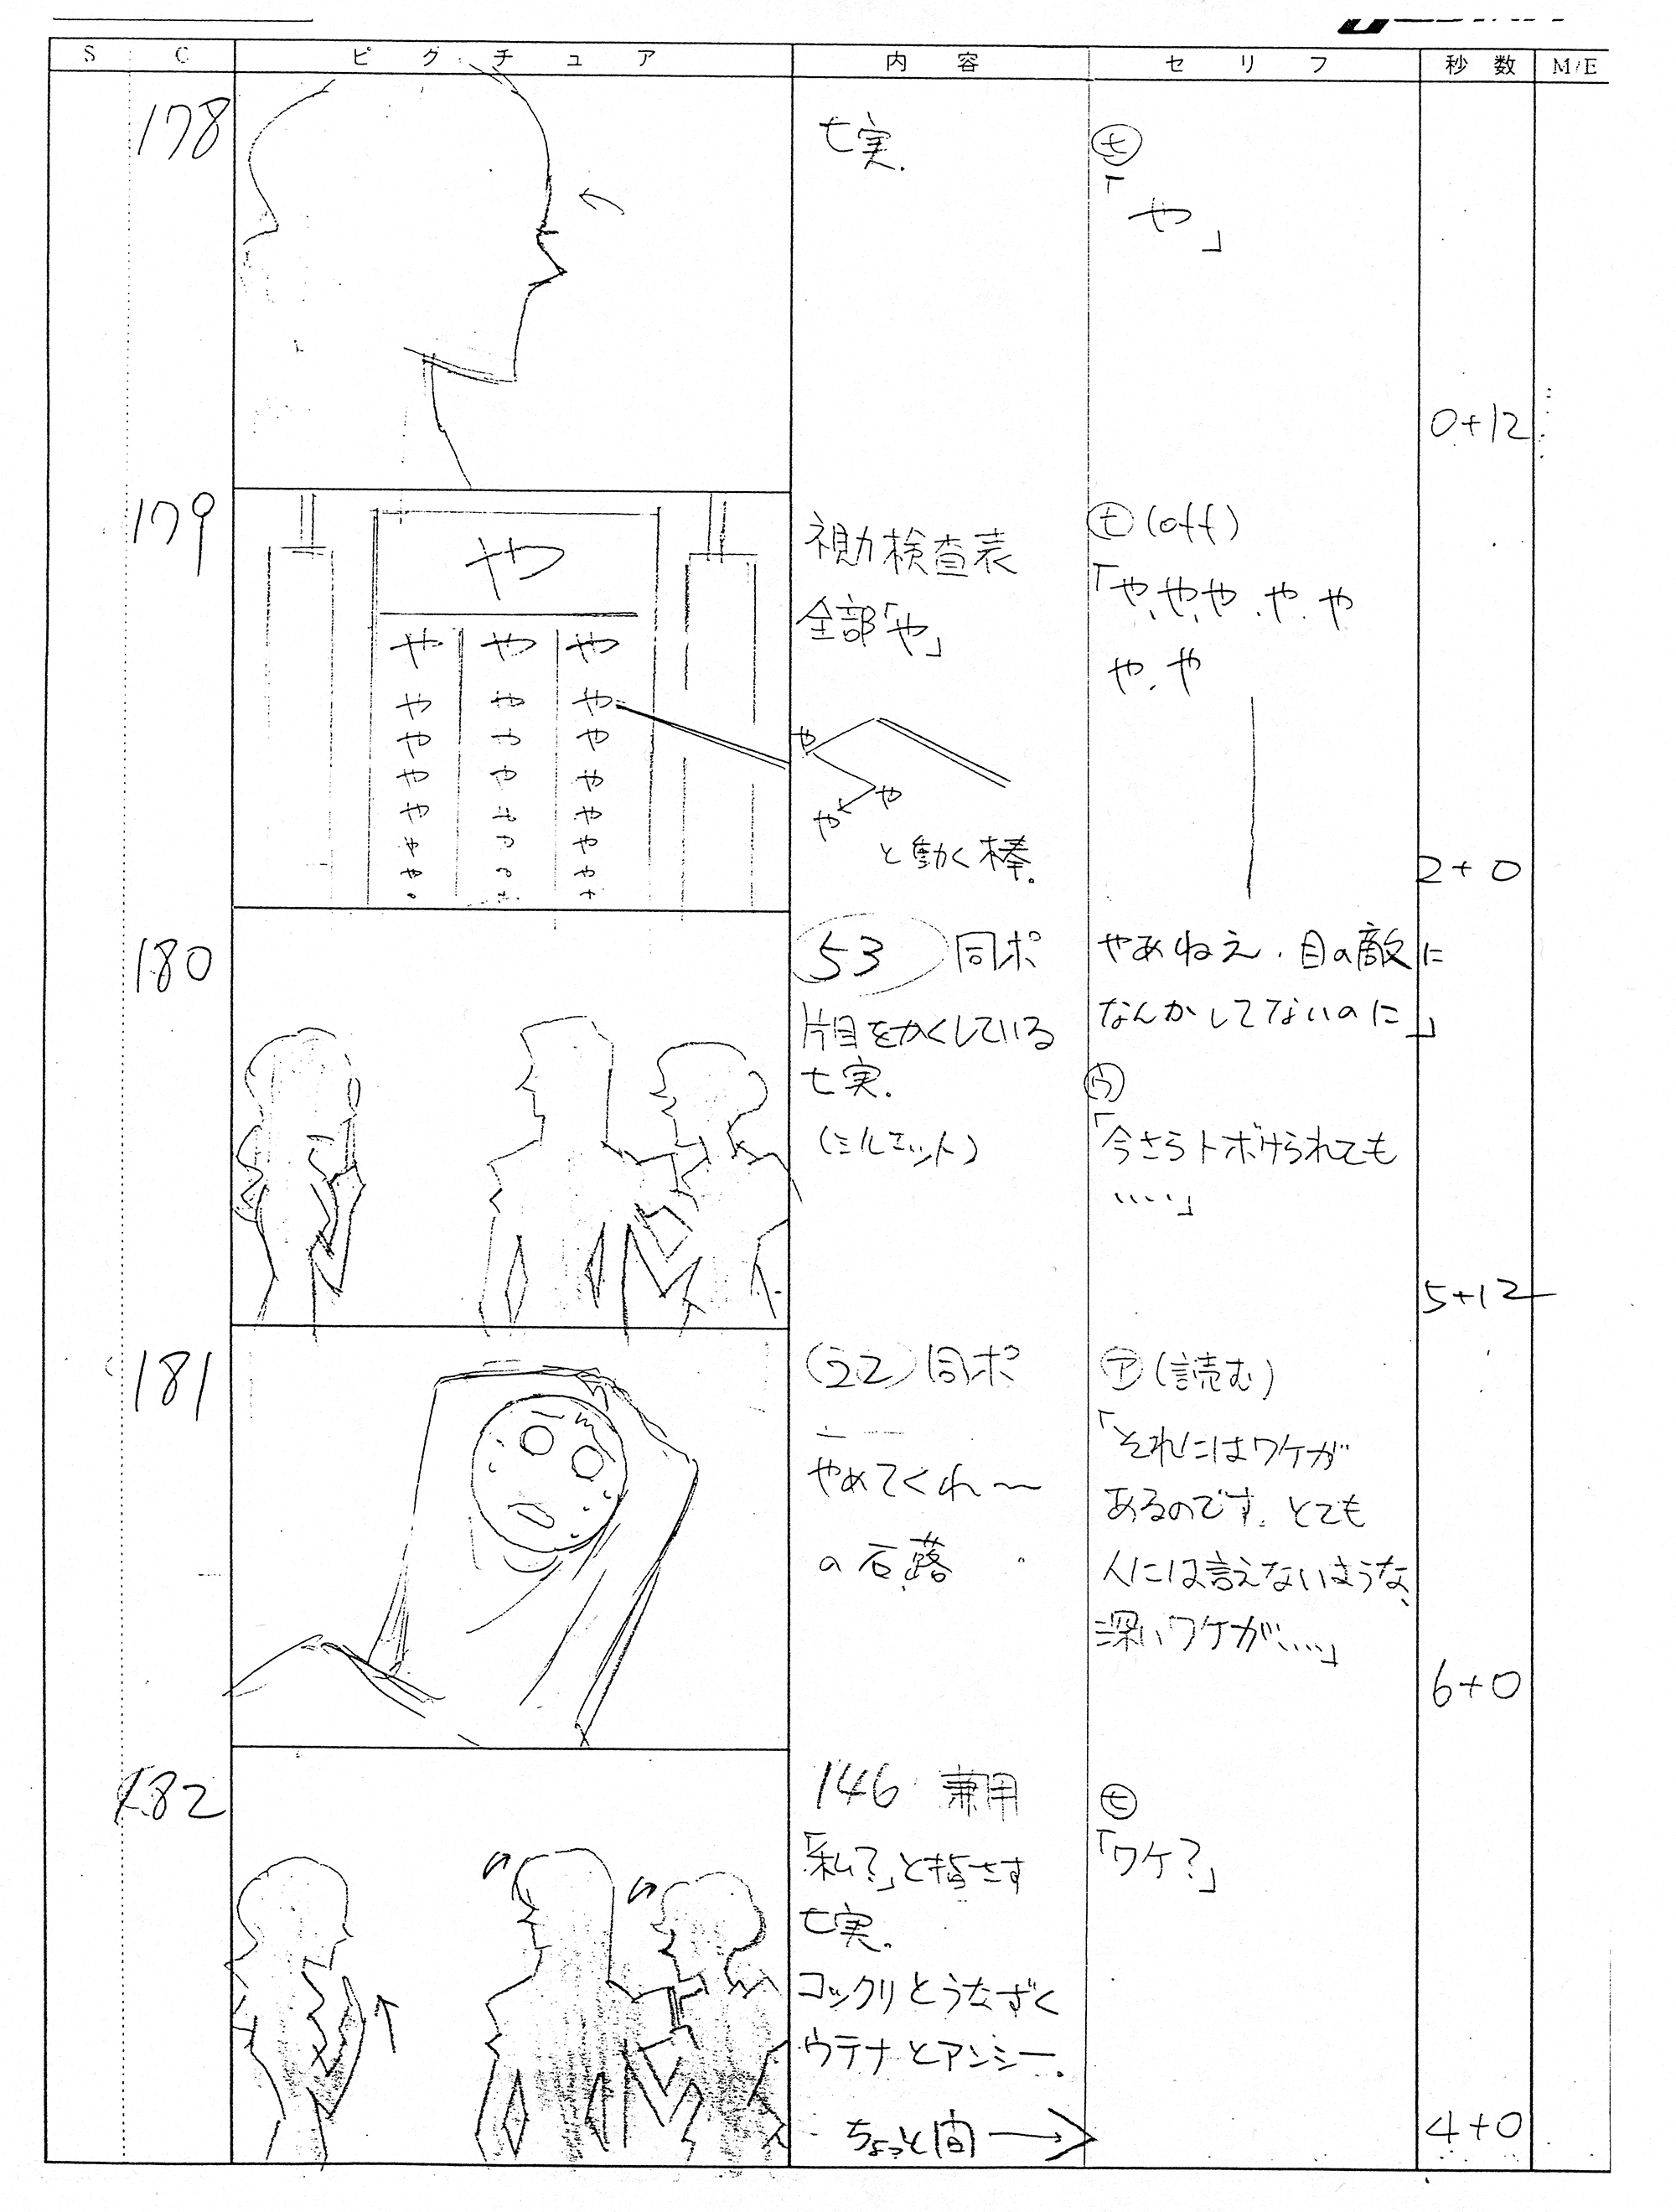 S C ピクチュア 内容 セリフ 秒数 M/E
178
七実.
七
「や」
0+12
179
や
や や や
や や や
や や や
や や や
や や や
や や や
や や
視力検査表
全部「や」
や
や
や
と動く棒.
七 (off)
「や、や、や、や、や
や、や
2+0
180
53 同ポ
片目をかくしている
七実.
(シルエット)
やあねえ、目の敵に
なんかしてないのに」
ウ
「今さらトボけられても
‥‥」
5+12
181
22 同ポ
やめてくれ〜
の石蕗
ア (読む)
「それにはワケが
あるのです。とても
人には言えないような、
深いワケが‥‥」
6+0
182
146 兼用
「私?」と指さす
七実.
コックリとうなずく
ウテナとアンシー.
ちょっと間
七
「ワケ?」
4+0